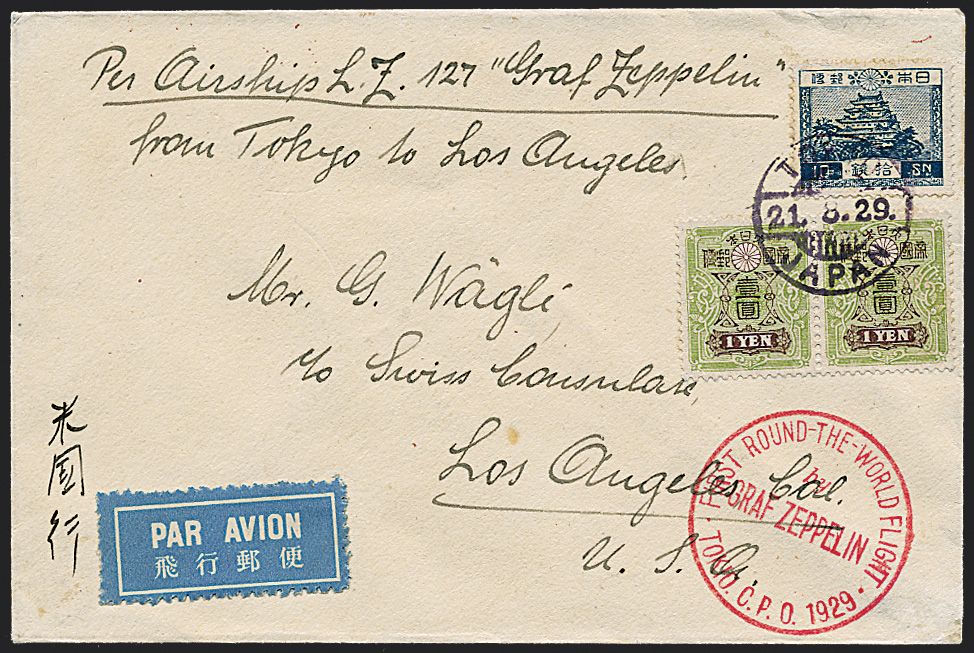 Per Airship L.Z. 127 "Graf Zeppelin"
from Tokyo to Los Angeles
Mr. G. Wägli
c/o Swiss Consulate
Los Angeles Cal.
U. S. A.
米国行
PAR AVION
飛行郵便
便郵 本日
10 銭拾 SN
21. 8. 29.
JAPAN
便郵 本日 國帝
壹圓
1 YEN
便郵 本日 國帝
壹圓
1 YEN
FIRST ROUND-THE-WORLD FLIGHT
by
GRAF ZEPPELIN
TOKYO. C. P. O. 1929